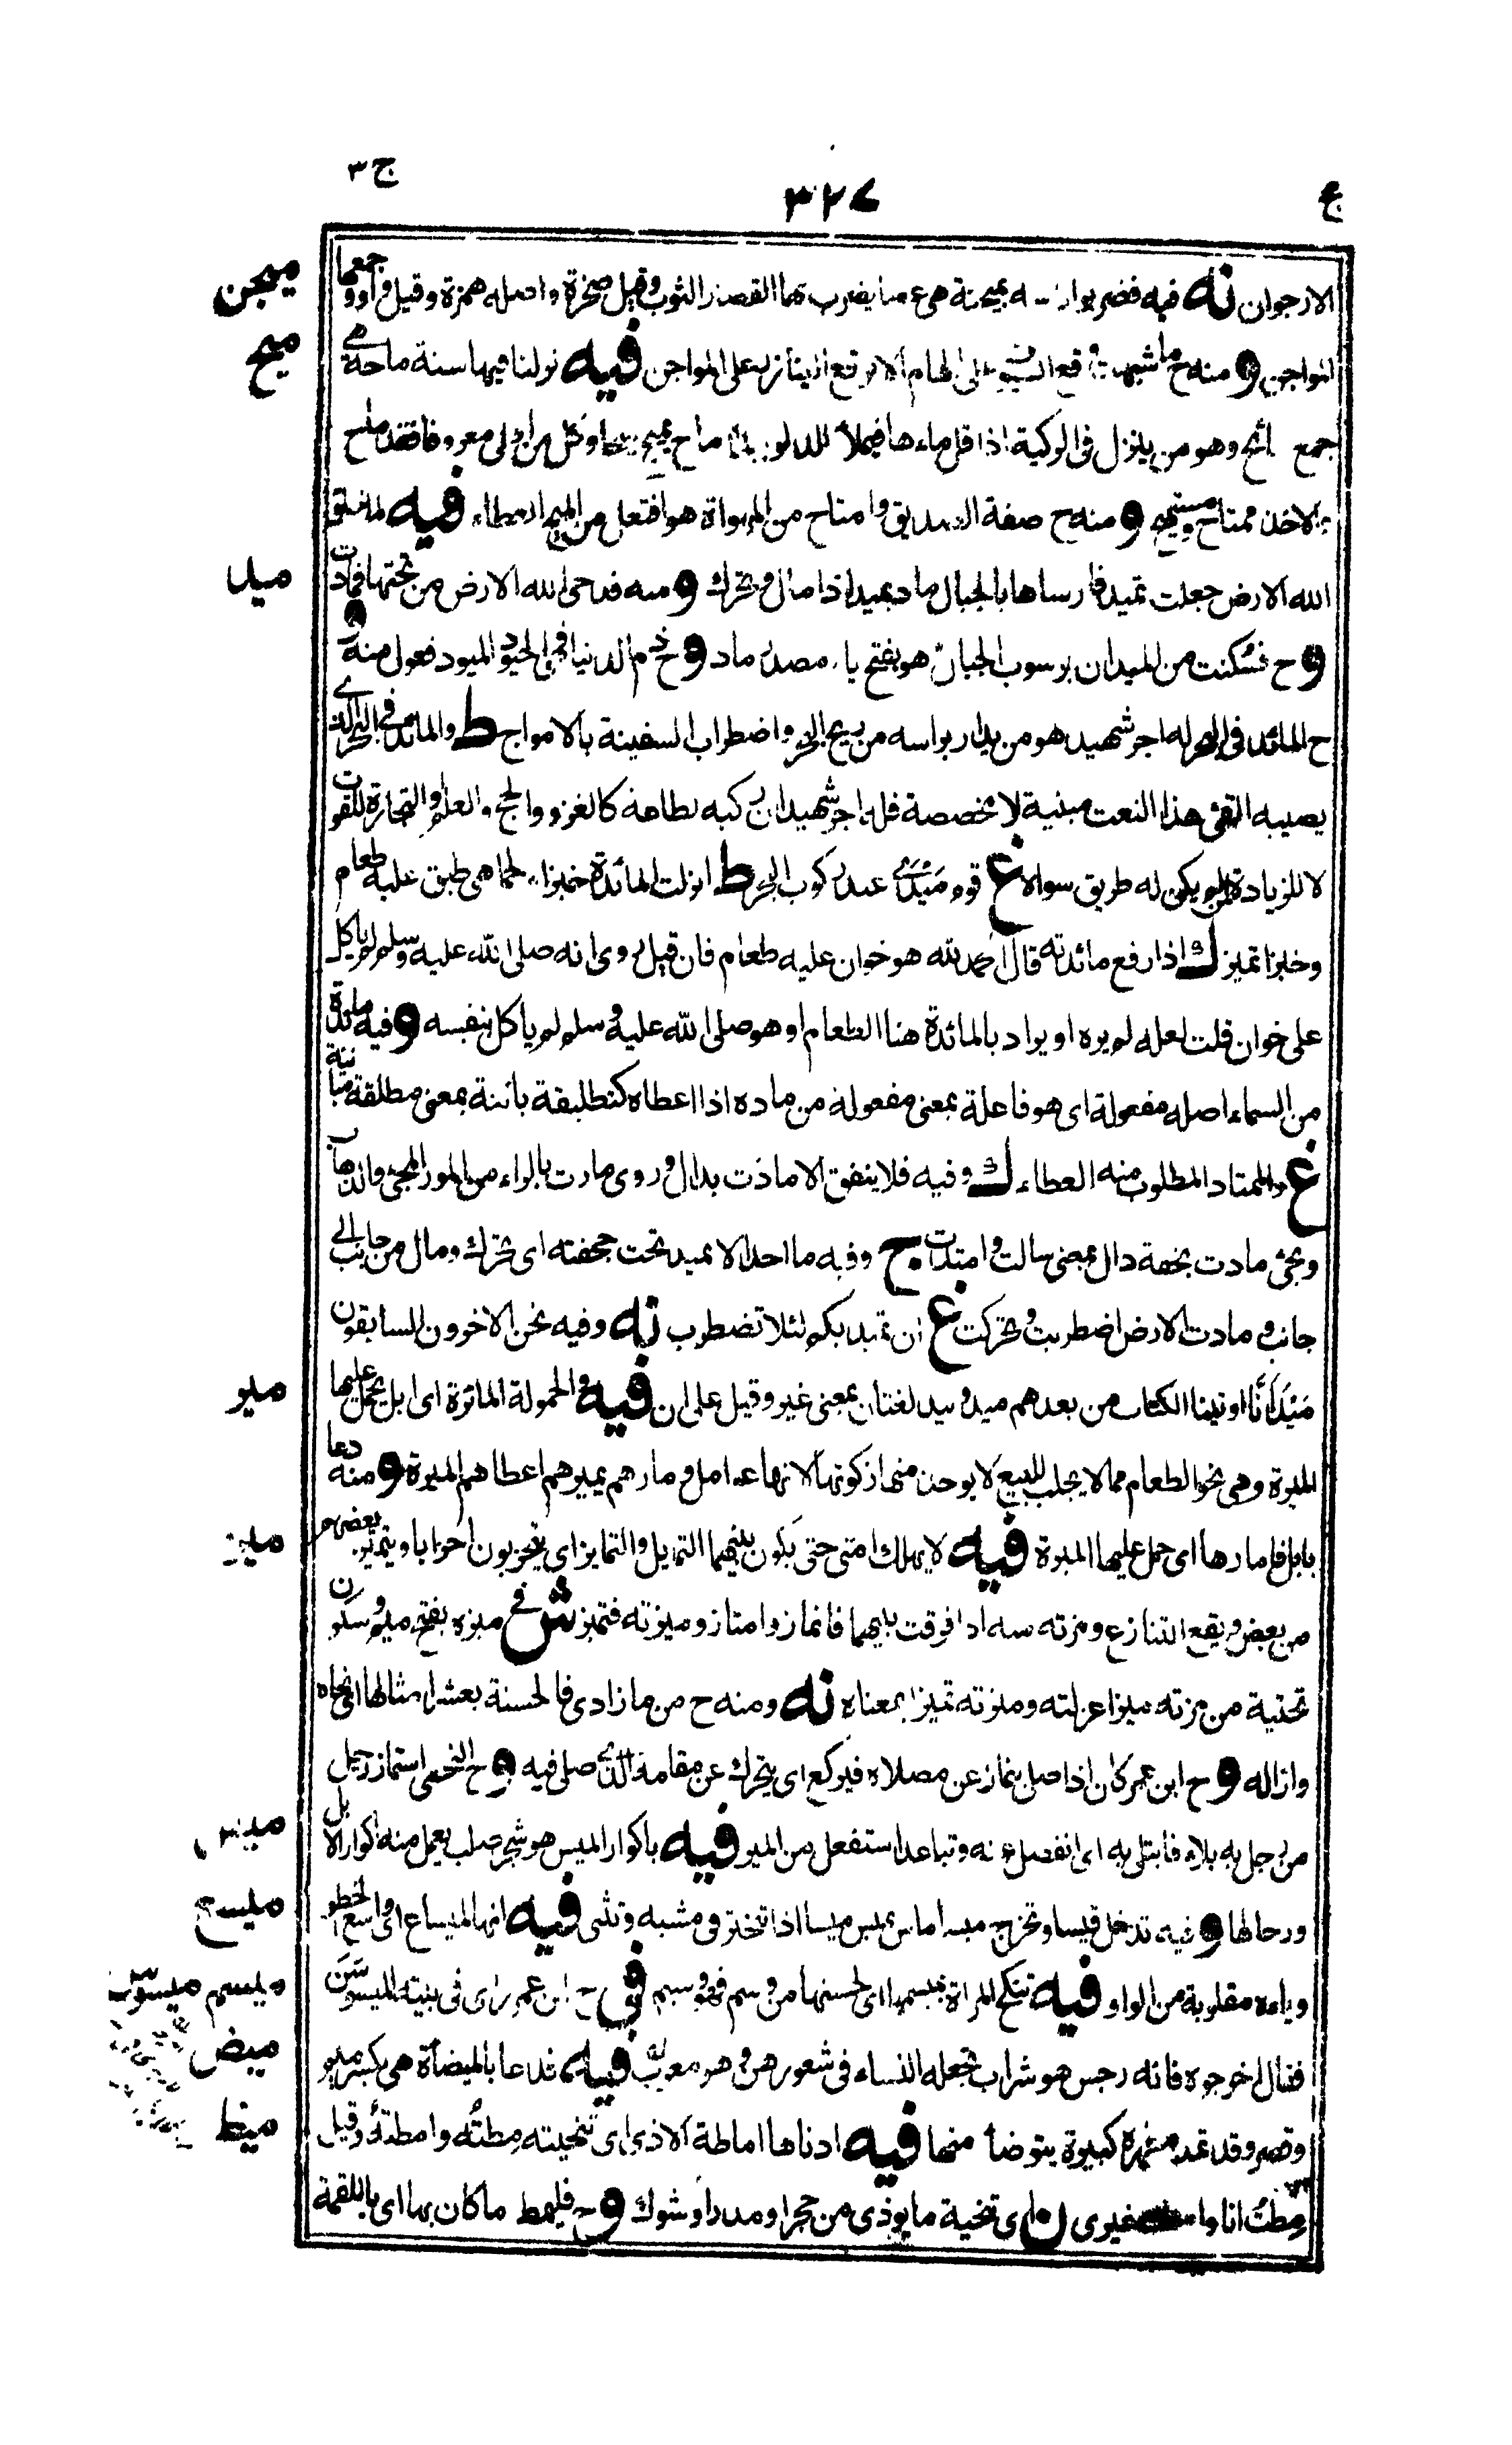 ج ٣
٣٢٧
ع
الارجوان نه فيه فضربوا بميجنة هى ما يضرب بها القصار الثوب وقيل صخرة واصله همزة وقيل واو وجمعها
ميجن
المواجن و منه ح ما شبهت وقع السيوف على الهام الا بوقع البيازر على المواجن فيه نزلنا فيها ستة ماحة هى
ميح
جمع مائح وهو من ينزل فى الركية اذا قل ماءها فيملأ الدلو بيده ماح يميح ميحا وكل من اولى معروفا فقد ماح
والاخذ ممتاح ومستميح و منه ح صفة الصديق وامتاح من المهواة هو افتعل من الميح العطاء فيه لما خلق
الله الارض جعلت تميد فارساها بالجبال ماد يميد اذا مال وتحرك و منه فدحى الله الارض من تحتها فمادت
ميد
و ح فسكنت من الميدان برسوب الجبال هو بفتح ياء مصدر ماد و ح ذم الدنيا فهى الحيود الميود فعول منه و
ح المائد فى البحر له اجر شهيد هو من يدار براسه من ريح البحر واضطراب السفينة بالامواج ط والمائد فى البحر الذى
يصيبه القئ هذا النعت مبنية لا مخصصة فله اجر شهيد ان ركبه لطاعة كالغزو والحج والعلم والتجارة للقوت
لا للزيادة ولم يكن له طريق سواه غ قوم ميدى عند ركوب البحر ط انزلت المائدة خبزا ولحما هى طبق عليه طعام
وخبزا تميز ك اذا رفع مائدته قال الحمد لله هو خوان عليه طعام فان قيل روى انه صلى الله عليه وسلم لم ياكل
على خوان قلت لعله لم يره او يراد بالمائدة هنا الطعام او هو صلى الله عليه وسلم لم ياكل بنفسه و فيه مائدة
من السماء اصله مفعولة اى هو فاعلة بمعنى مفعولة من ماده اذا اعطاه كتطليقة بائنة بمعنى مطلقة مبانة
غ والممتاد المطلوب منه العطاء ك وفيه فلا ينفق الا مادت بدال وروى مارت بالراء من المور المجئ والذهاب
ويجئ مادت بخفة دال بمعنى سالت وامتدت ج وفيه ما احد الا يميد تحت جحفته اى تحرك ومال من جانب الى
جانب ومادت الارض اضطربت وتحركت غ ان تميد بكم لئلا تضطرب نه وفيه نحن الاخرون السابقون
ميد انا اوتينا الكتاب من بعدهم ميد وبيد لغتان بمعنى غير وقيل على ان فيه والحمولة المائرة اى ابل يحمل عليها
مير
الميرة وهى نحو الطعام مما لا يجلب للبيع لا يوخذ منها زكوتها لانها عوامل ومارهم يميرهم اعطاهم الميرة و منه دعا
بابل فامارها اى حمل عليها الميرة فيه لا يهلك امتى حتى يكون بينهم التمايل والتمايز اى يتحزبون احزابا ويتميز بعضهم
ميز
من بعض ويقع التنازع ومزته منه اذا فرقت بينهما فانماز وامتاز وميزته فتميز ش ح ميزه بفتح ميم وسكون
تحتية من مزته ميزا عزلته وميزته تميزا بمعناه نه ومنه ح من ماز اذى فالحسنة بعشر امثالها اى نحاه
وازاله و ح ابن عمر كان اذا صلى ينماز عن مصلاه فيركع اى يتحرك عن مقامه الذى صلى فيه و ح النخعى استماز رجل
من رجل به بلاء فابتلى به اى انفصل عنه وتباعد استفعل من الميز فيه باكوار الميس هو شجر صلب يعمل منه اكوار الابل
ميس
ورحالها و فيه تدخل قيسا وتخرج ميسا ماس يميس ميسا اذا تبختر فى مشيه وتثنى فيه انها لميساع اى واسع الخطو
ميسع
وياءه مقلوبة من الواو فيه تنكح المراة لميسمها اى لحسنها من وسم فهو وسيم فى ح ابن عمر راى فى بيته الميسوسن
ميسم ميسوسن
فقال اخرجوه فانه رجس هو شراب تجعله النساء فى شعورهن وهو معرب فيه فدعا بالميضأة هى بكسر ميم
ميض
وقصر وقد تمد مطهرة كبيرة يتوضأ منها فيه ادناها اماطة الاذى اى تنحيته مطته وامطته وقيل
ميط
مطت انا وامطت غيرى ن اى تنحية ما يوذى من حجر او مدر او شوك و ح فليمط ما كان بها اى باللقمة